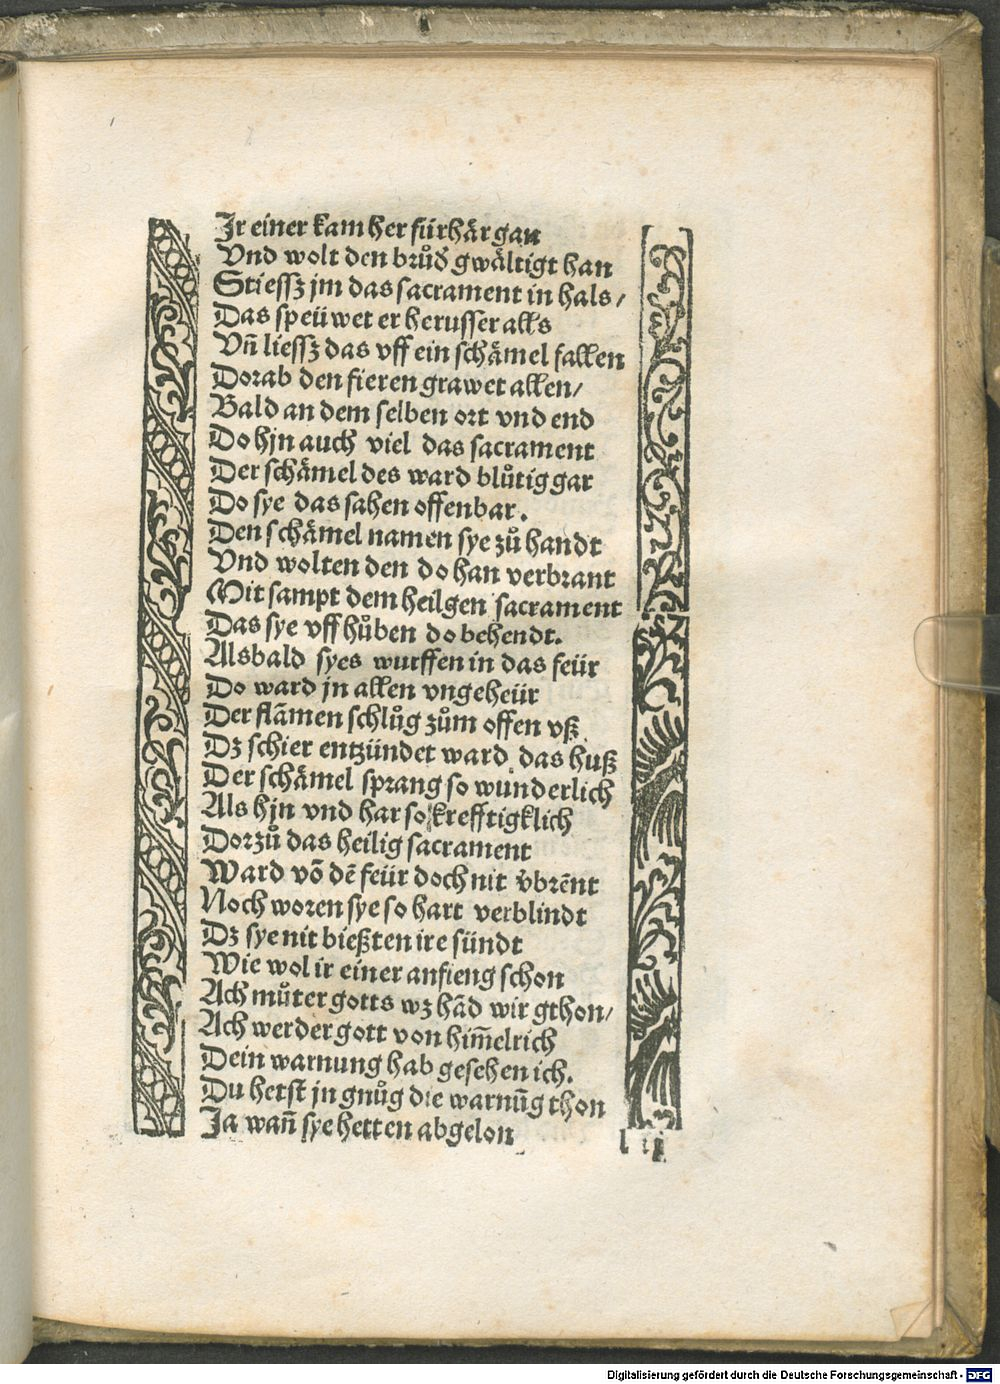 Jr einer kam her fürhär gan
Vnd wolt den brůd͛ gwältigt han
Stiessz jm das sacrament in hals /
Das speüwet er herusser alls
Vñ liessz das vff ein schämel fallen
Dorab den fieren grawet allen /
Bald an dem selben ort vnd end
Do hjn auch viel das sacrament
Der schämel des ward blůtig gar
Do sye das sahen offenbar.
Den schämel namen sye zů handt
Vnd wolten den do han verbrant
Mit sampt dem heilgen sacrament
Das sye vff hůben do behendt.
Alsbald syes wurffen in das feür
Do ward jn allen vngeheür
Der flãmen schlůg zům offen vß
Dz schier entzündet ward das huß
Der schämel sprang so wunderlich
Als hjn vnd har so krefftigklich
Dorzů das heilig sacrament
Ward võ dẽ feür doch nit v̈brẽnt
Noch woren sye so hart verblindt
Dz sye nit bießten ire sündt
Wie wol ir einer anfieng schon
Ach můter gotts wz hãd wir gthon /
Ach werder gott von him̃elrich
Dein warnung hab gesehen ich.
Du hetst jn gnůg die warnũg thon
Ja wañ sye hetten abgelon
l iij
Digitalisierung gefördert durch die Deutsche Forschungsgemeinschaft - DFG